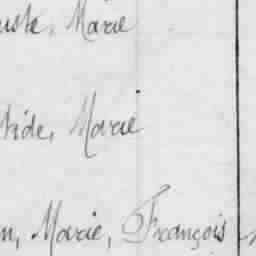 uste, Marie
tide, Marie
n, Marie, François